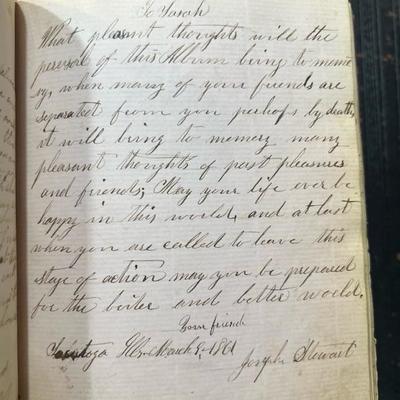 To Sarah
What pleasant thoughts will the
perusal of this Album bring to memo
ry, when many of your friends are
separated from you perhaps by death,
it will bring to memory many
pleasant thoughts of past pleasures
and friends; May your life ever be
happy in this world, and at last
when you are called to leave this
stage of action may you be prepared
for the
and better world.
Your friend
March 1861
Joseph Stewart